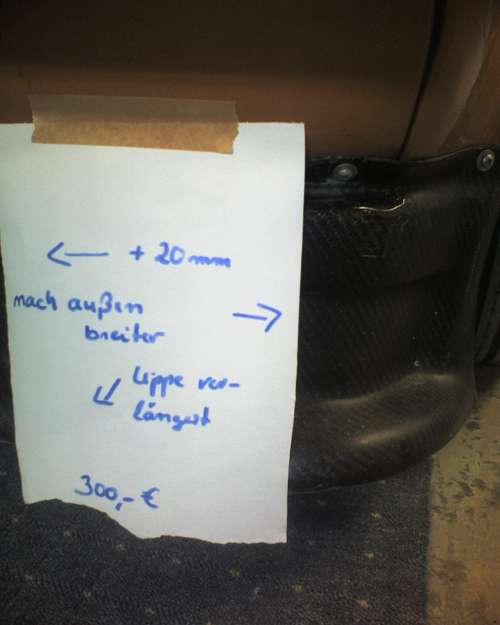 ← + 20 mm
nach außen →
breiter
↙ Lippe ver-
längert
300,- €